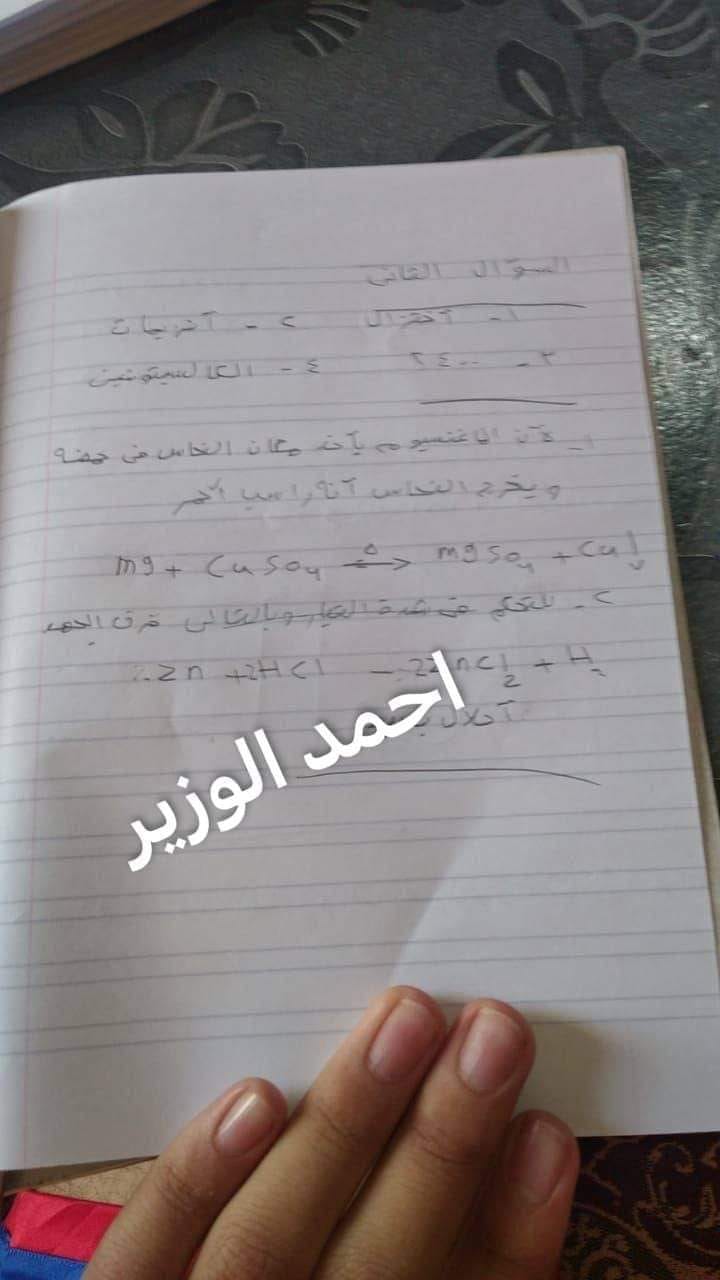 السؤال الثاني
١- آختزال ٢- آنزيمات
٣- ٢٤٠٠ ٤- الكالسيتونين
١- لآن الماغنسيوم يآخذ مكان النحاس في
ويخرج النحاس راسب آحمر
mg + CuSO4 Δ mgSO4 + Cu↓
٢- للتحكم في شدة التيار وبالتالي فرق الجهد
Zn + 2HCl - ZnCl2 + H2
آحلال
احمد الوزير